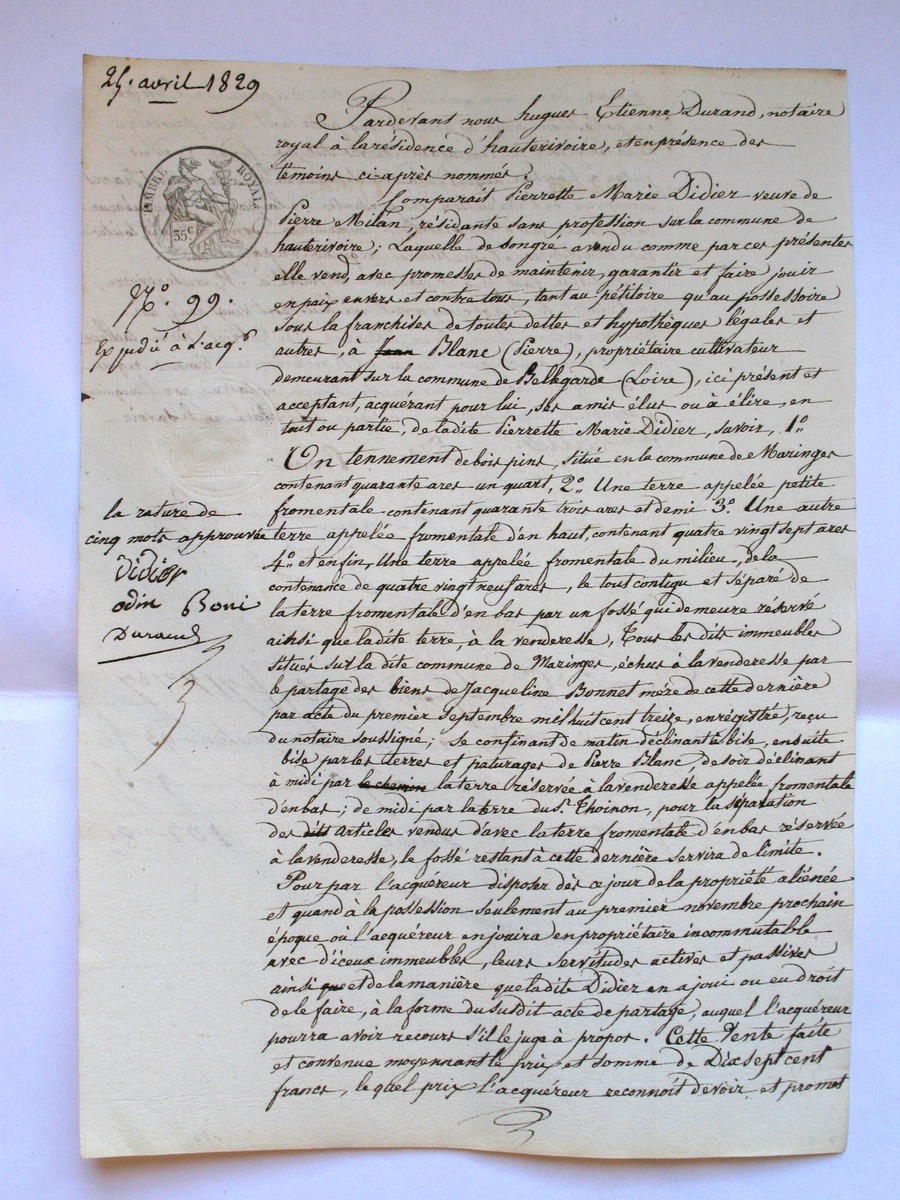 25. avril 1829
TIMBRE ROYAL
35 c
N.o 99.
Expédié à l'acq.r
la rature de
cinq mots approuvée
Didier
odin Boni
Durand
Pardevant nous hugues Etienne Durand, notaire
royal à la résidence d'hauterivoire, et en présence des
témoins ci-après nommés.
Comparait Pierrette Marie Didier veuve de
Pierre Milan, résidante sans profession sur la commune de
hauterivoire; Laquelle de songré a vendu comme par ces présentes
elle vend, avec promesses de maintenir, garantir et faire jouir
en paix envers et contre tous, tant au pétitoire qu'au possessoire
sous la franchises de toutes dettes et hypothèques légales et
autres, à Jean Blanc (Pierre), propriétaire cultivateur
demeurant sur la commune de Bellegarde (Loire), ici présent et
acceptant, acquérant pour lui, ses amis élus ou à élire, en
tout ou partie, de ladite Pierrette Marie Didier, savoir, 1.o
Un tennement de bois pins, situé en la commune de Maringes
contenant quarante ares un quart, 2.o Une terre appelée petite
fromentale contenant quarante trois ares et demi 3.o Une autre
terre appelée fromentale d'en haut, contenant quatre vingt sept ares
4.o et enfin, Une terre appelée fromentale du milieu, de la
contenance de quatre vingt neuf ares, le tout contigu et séparé de
la terre fromentale d'en bas par un fossé qui demeure réservé
ainsi que ladite terre, à la venderesse, Tous les dits immeubles
situés sur la dite commune de Maringes, échus à la venderesse par
le partage des biens de Jacqueline Bonnet mére de cette dernière
par acte du premier Septembre mil huit cent treize, enrégistré, reçu
du notaire soussigné; se confinant de matin déclinant à bise, ensuite
bise par les terres et paturages de Pierre Blanc, de soir déclinant
à midi par le chemin la terre réservée à la venderesse appelée fromentale
d'en bas; de midi par la terre du S.r Thoinon, pour la séparation
des dits articles vendus d'avec la terre fromentale d'en bas réservée
à la venderesse, le fossé restant à cette dernière servira de limite.
Pour par l'acquéreur disposer dès ce jour de la propriété aliénée
et quand à la possession seulement au premier novembre prochain
époque où l'acquéreur en jouira en propriétaire incommutable
avec d'iceux immeubles, leurs servitudes actives et passives
ainsi que et de la manière que ladite Didier en a joui ou eu droit
de le faire, à la forme du susdit acte de partage, auquel l'acquéreur
pourra avoir recours s'il le juge à propos. Cette Vente faite
et convenue moyennant le prix et somme de Dix sept cent
francs, le quel prix l'acquéreur reconnoit devoir et promet